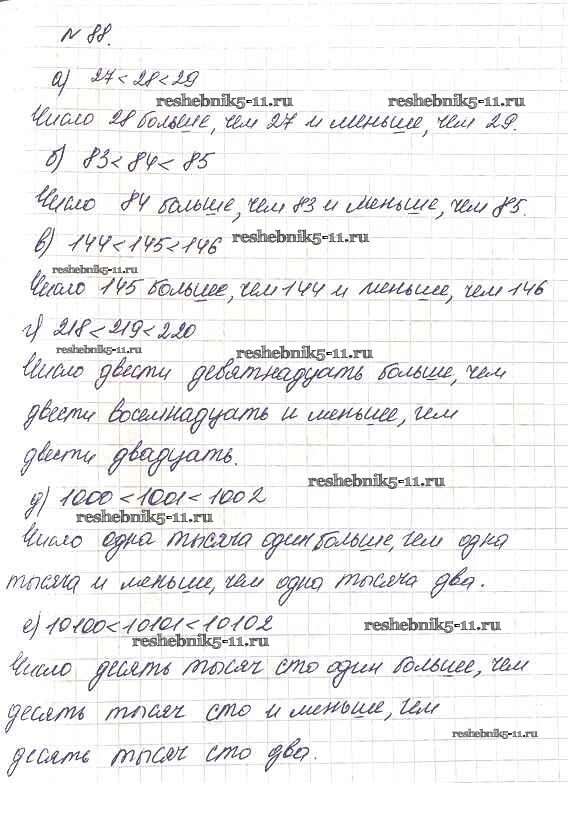 № 88.
а) 27 < 28 < 29
reshebnik5-11.ru reshebnik5-11.ru
Число 28 больше, чем 27 и меньше, чем 29.
б) 83 < 84 < 85
Число 84 больше, чем 83 и меньше, чем 85.
в) 144 < 145 < 146 reshebnik5-11.ru
reshebnik5-11.ru
Число 145 больше, чем 144 и меньше, чем 146
г) 218 < 219 < 220
reshebnik5-11.ru reshebnik5-11.ru
Число двести девятнадцать больше, чем
двести восемнадцать и меньше, чем
двести двадцать.
reshebnik5-11.ru
д) 1000 < 1001 < 1002
reshebnik5-11.ru
Число одна тысяча один больше, чем одна
тысяча и меньше, чем одна тысяча два.
е) 10100 < 10101 < 10102 reshebnik5-11.ru
reshebnik5-11.ru
Число десять тысяч сто один больше, чем
десять тысяч сто и меньше, чем
reshebnik5-11.ru
десять тысяч сто два.